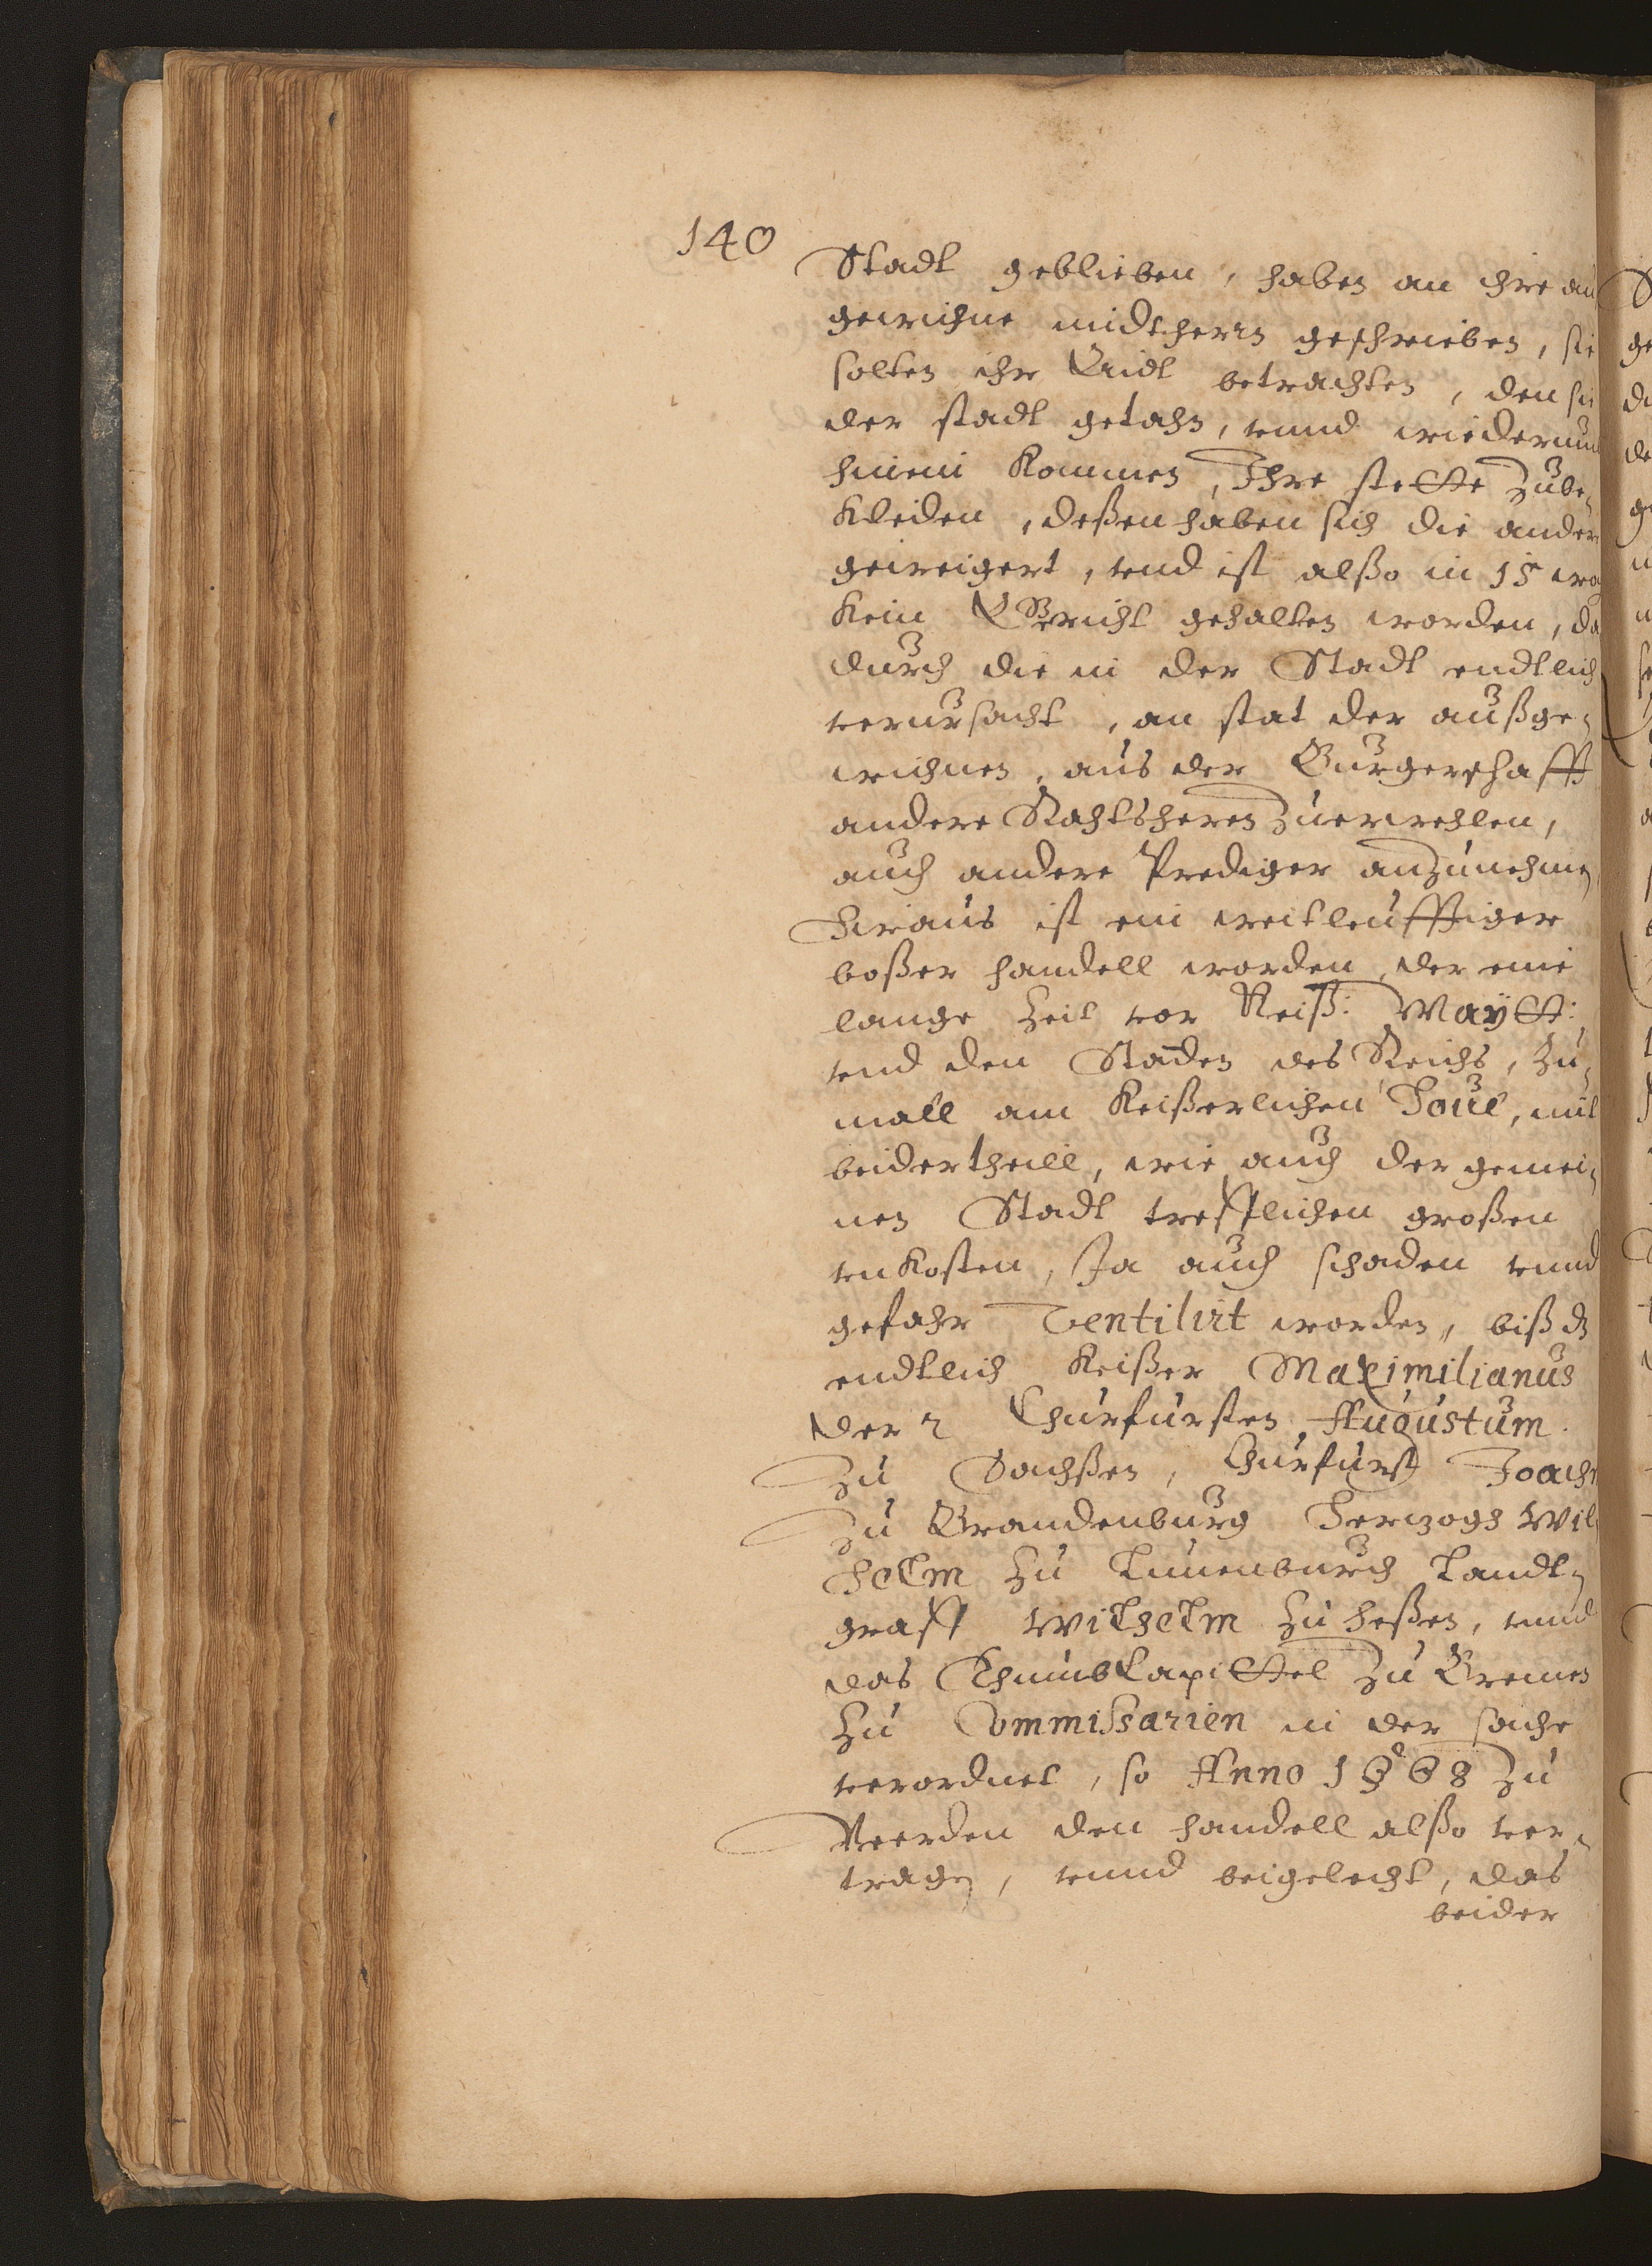 140
Stadt geblieben, haben an ihre au
gewichne midtherrn geschrieben, sie
solten ihr Eÿdt betrachten, den sie
der stadt getahn, unnd wiederumb
hinein kommen, Ihre stette zube„
kleiden, deßen haben sich die ander
geweigert, und ist alßo in 15 wo
kein Gericht gehalten worden, da
durch die in der Stadt endtlich
verursacht, an stat der außge„
wichnen, aus der Burgerschafft
andere Rahtsherrn zuerwehlen,
auch andere Prediger anzunehmen
Hieraus ist ein weitleufftiger
boßer handell worden, der eine
lange Zeit vor Keiß: Maÿtt:
und den Stenden des Reichs, zu„
mall am Keißerlichen Hove, mit
beidertheill, wie auch der gemei„
nen Stadt trefflichen großen
unkosten, Ja auch schaden unnd
gefahr Ventilirt worden, biß dz
endtlich Keißer Maximilianus
der 2 Churfursten Augustum
zu Sachßen, Churfurst Joach
zu Brandenburg Hertzogh Wil
helm zu Lunenburch Landt„
graff Wilhelm zu Heßen, unnd
das Thumbkapittel zu Bremen
zu Commißarien in der sache
verordnet, so Anno 1568 zu
Veerden den handell alßo ver„
tragen, unnd beigelecht, das
beider